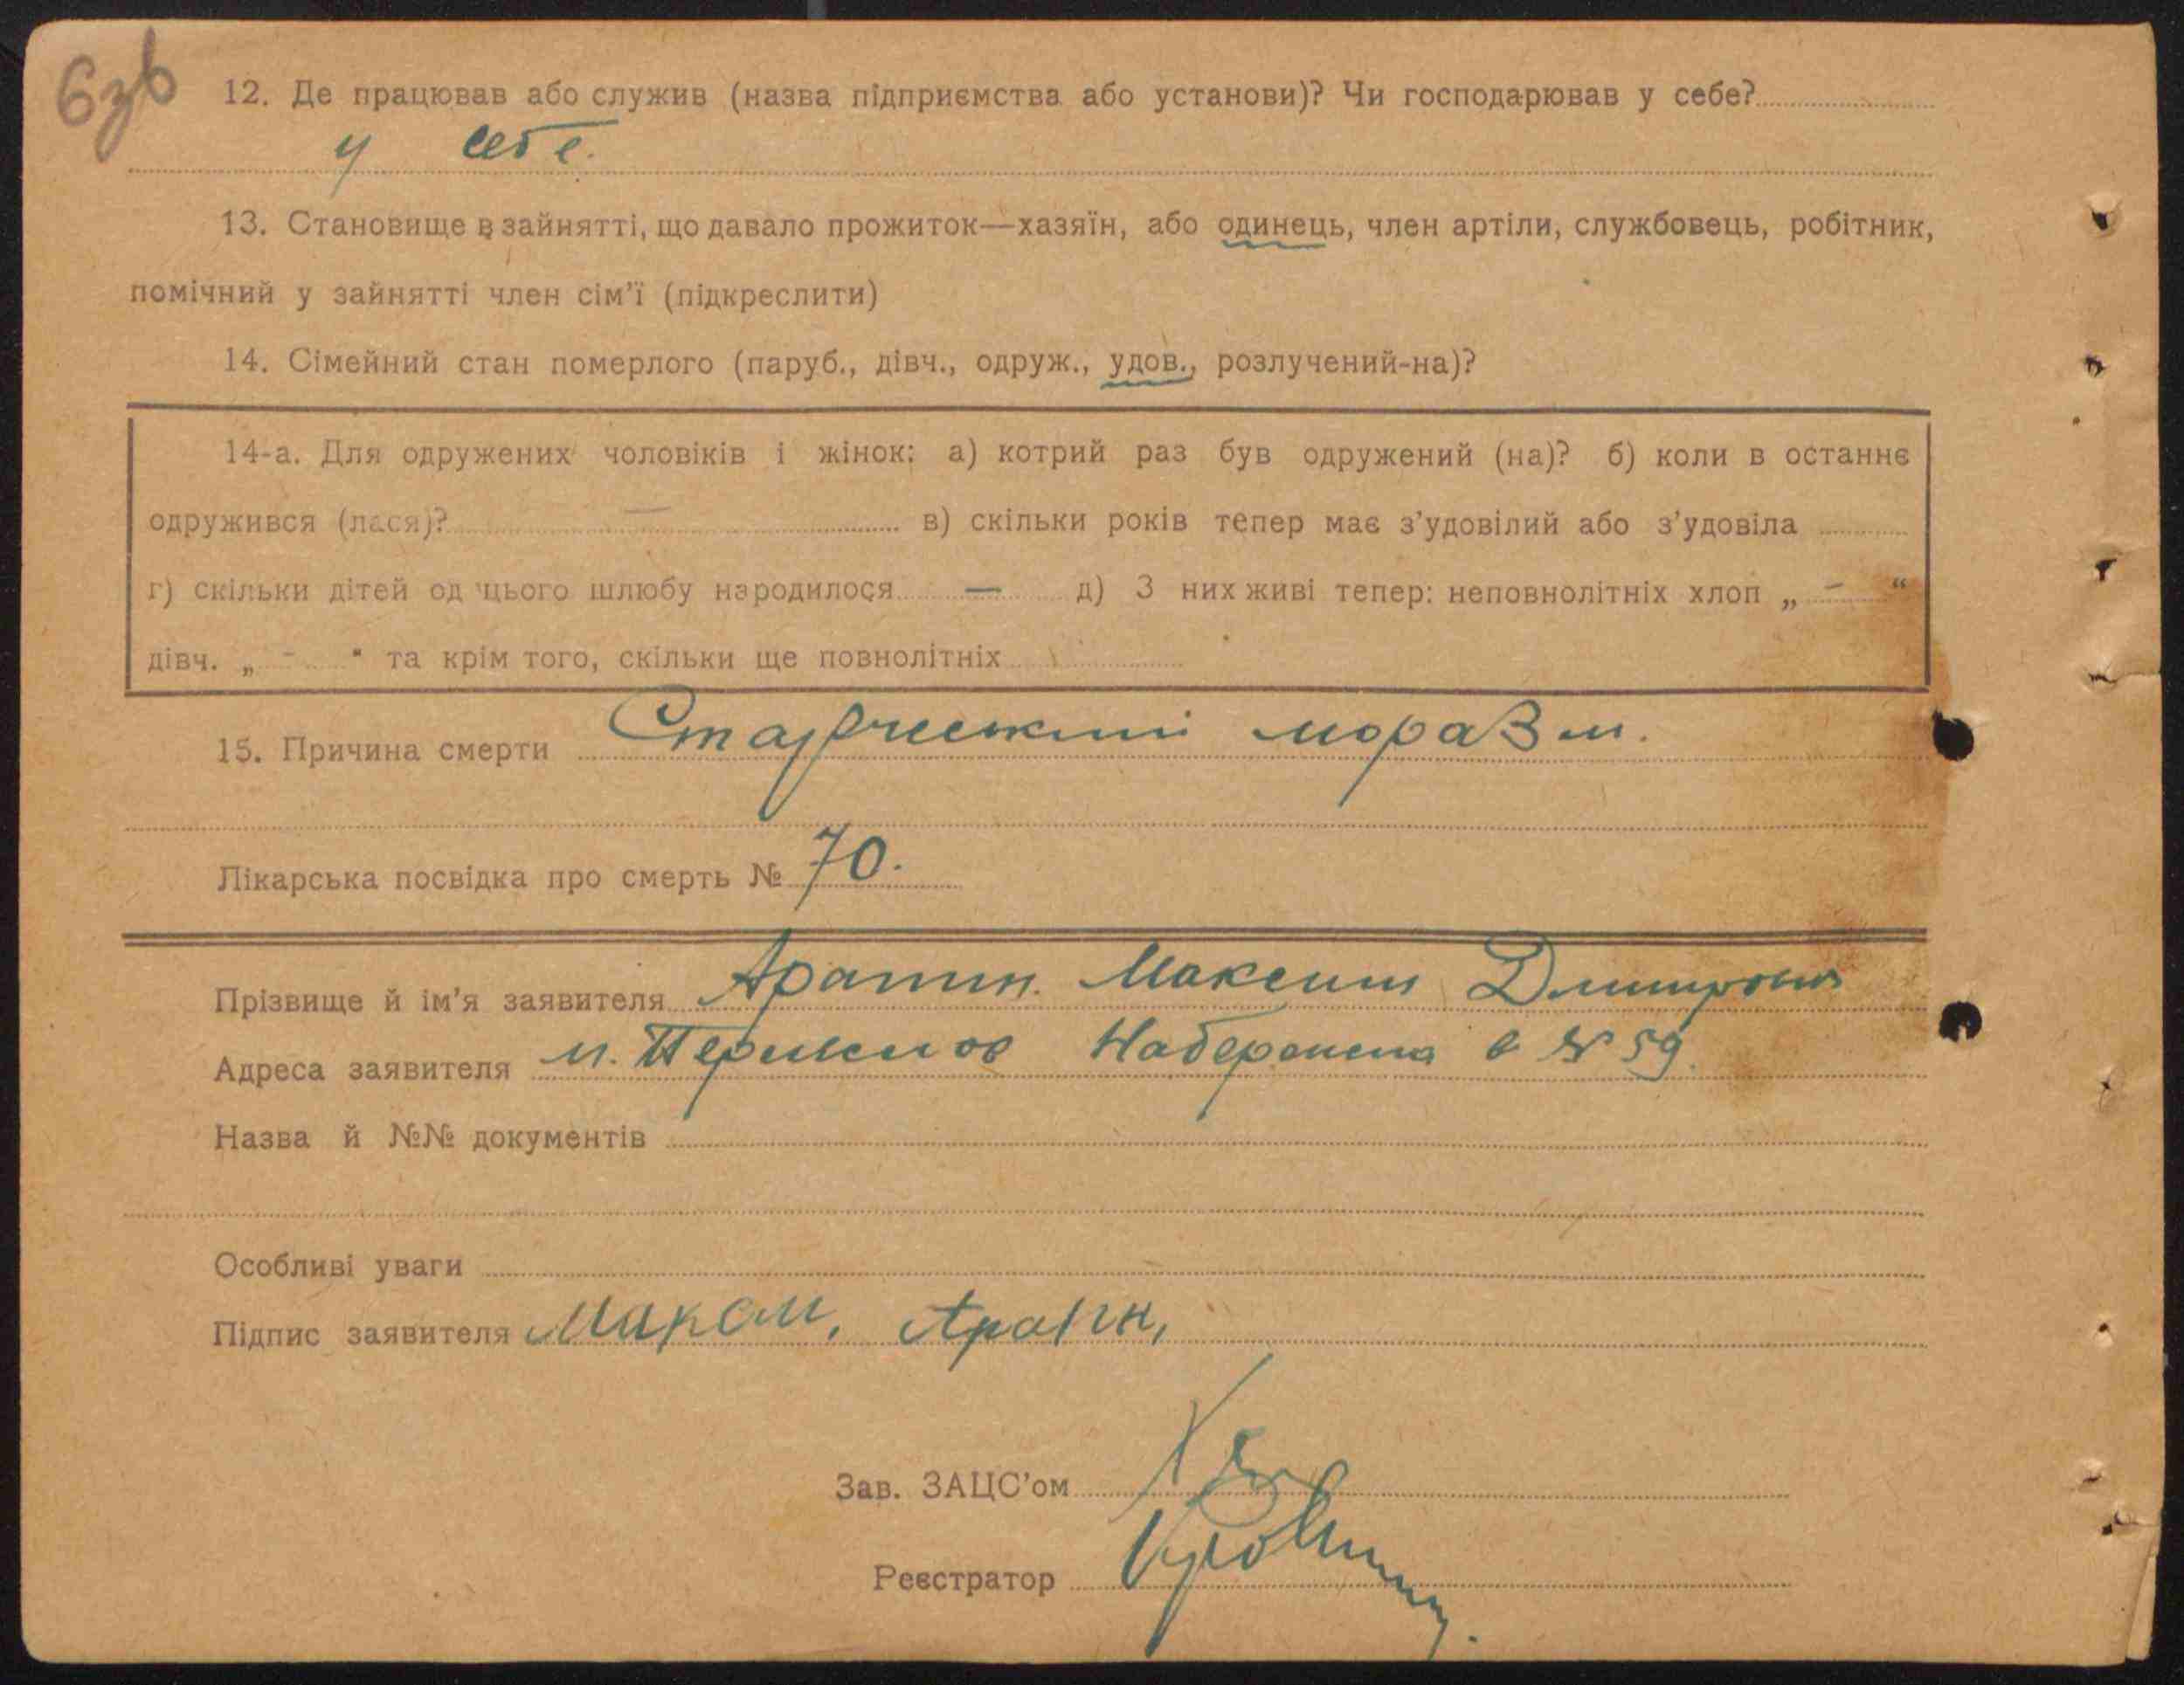 6зв
12. Де працював або служив (назва підприємства або установи)? Чи господарював у себе?
у себе.
13. Становище в зайнятті, що давало прожиток—хазяїн, або одинець, член артіли, службовець, робітник,
помічний у зайнятті член сім'ї (підкреслити)
14. Сімейний стан померлого (паруб., дівч., одруж., удов., розлучений-на)?
14-а. Для одружених чоловіків і жінок: а) котрий раз був одружений (на)? б) коли в останнє
одружився (лася)? — в) скільки років тепер має з'удовілий або з'удовіла
г) скільки дітей од цього шлюбу народилося — д) З них живі тепер: неповнолітніх хлоп „ — “
дівч. „ - “ та крім того, скільки ще повнолітніх
15. Причина смерти Старческий моразм.
Лікарська посвідка про смерть № 70.
Прізвище й ім'я заявителя Максим
Адреса заявителя м. № 59.
Назва й №№ документів
Особливі уваги
Підпис заявителя Максим,
Зав. ЗАЦС'ом
Реєстратор